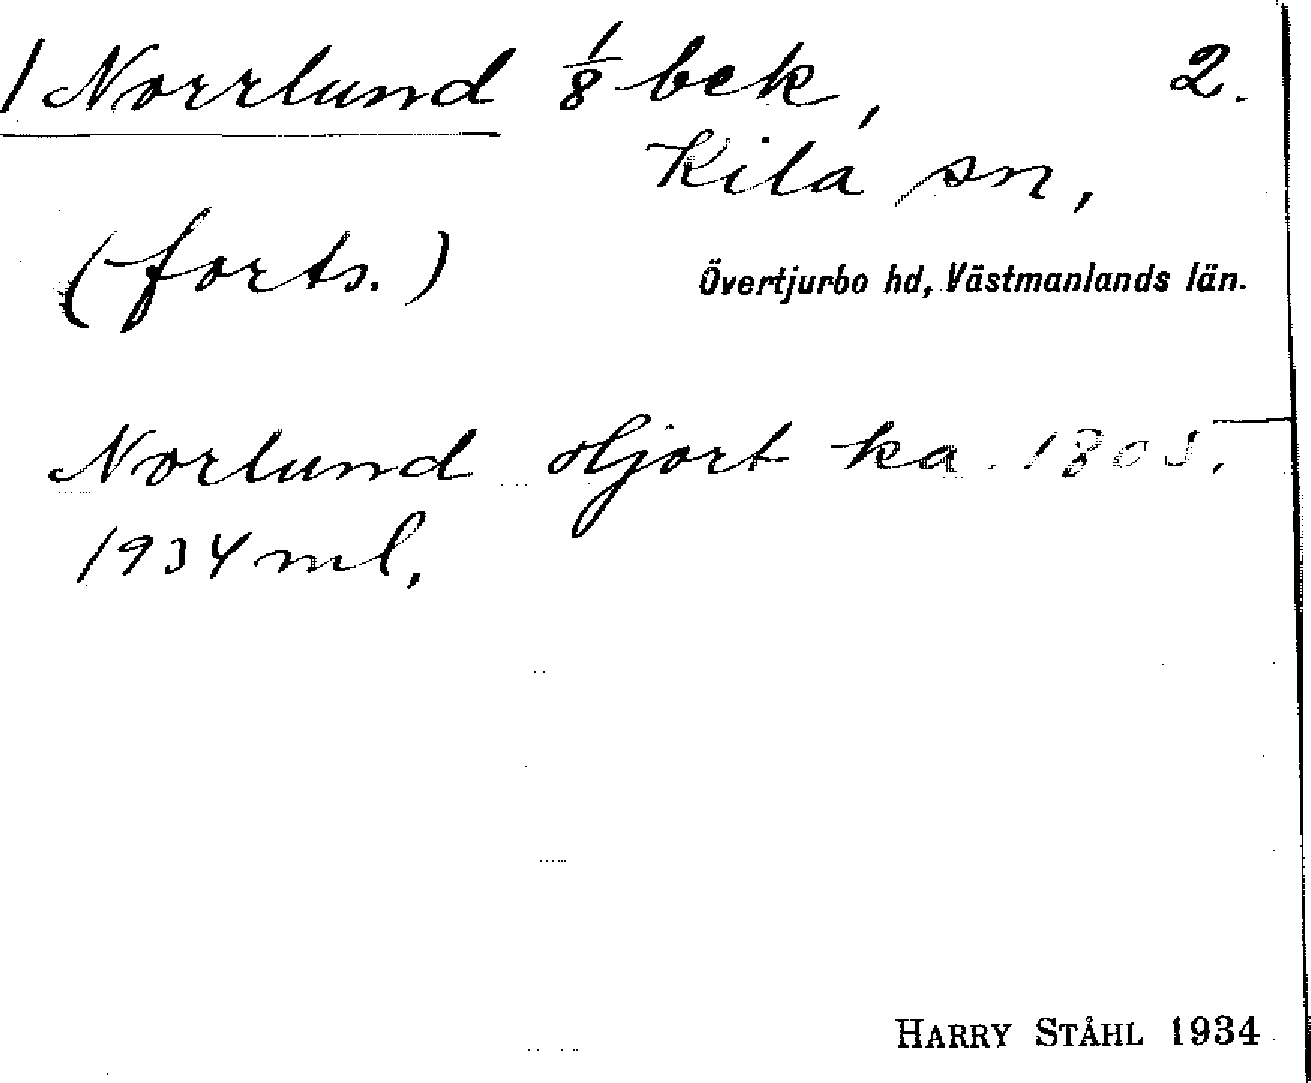 /Norrlund 1/8 bek, 2.
Kila sn,
(forts.)
Övertjurbo hd, Västmanlands län.
Norlund Hjort ka. 1805.
1934 ml.
HARRY STÅHL 1934